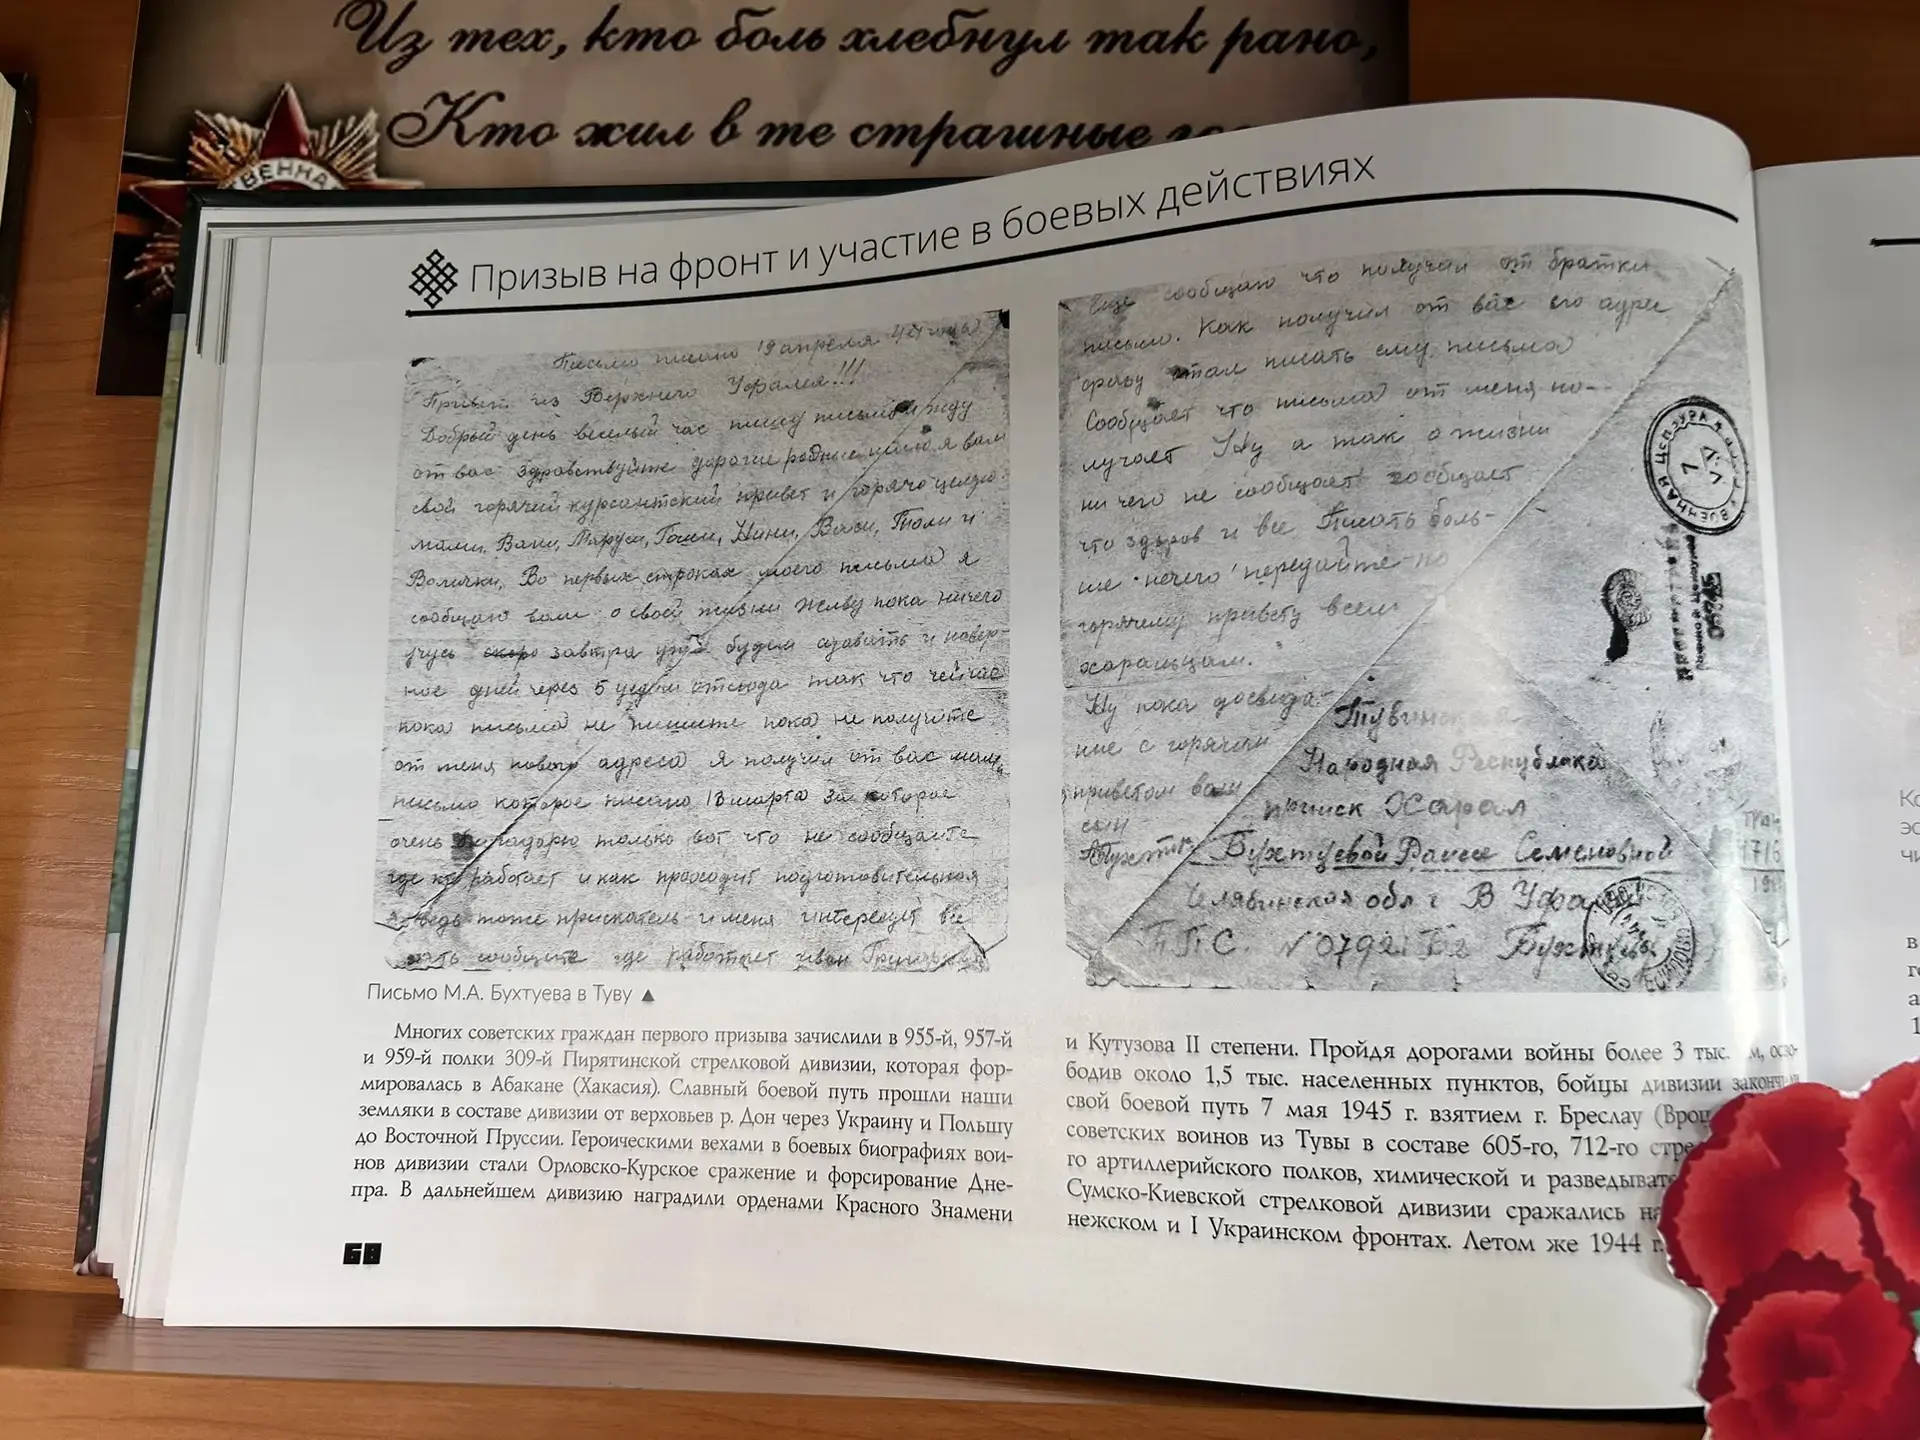 Из тех, кто боль хлебнул так рано,
Кто жил в те страшные
ВЕННА
Призыв на фронт и участие в боевых действиях
Письмо писано 19 апреля 44 года
Привет из Верхнего Уфалея!!!
Добрый день веселый час пишу письмо и жду
от вас здравствуйте дорогие родные шлю я вам
свой горячий курсантский привет и горячо целую
мами, Вани, Маруси, Гоши, Нини, Васи, Толи и
Волички, Во первых строках моего письма я
сообщаю вам о своей жизни Живу пока ничего
учусь скоро завтра будем сдавать и навер-
ное дней через 5 уедем отсюда так что сейчас
пока письма не пишите пока не получите
от меня нового адреса Я получил от вас мама
письмо которое писано 13 марта за которое
очень благодарю только вот что не сообщаете
где кто работает и как проходит подготовительная
я ведь тоже прискатель и меня интересует все
сообщите где работает иван
Еще сообщаю что получил от братки
письмо. Как получил от вас его адрес
сразу стал писать ему письма
Сообщает что письма от меня по-
лучает Ну а так о жизни
ни чего не сообщает сообщает
что здоров и все Писать боль-
ше нечего передайте по
горячему привету всем
харальцам.
Ну пока досвида-
ние с горячим
приветом вам
сын
Бухтуев
ВОЕННАЯ ЦЕНЗУРА
Тувинская
Народная Республика
прииск Харал
Бухтуевой Раисе Семеновной
Челябинская обл г В Уфалей
П.П.С. N 07921 Бухтуев
Письмо М.А. Бухтуева в Туву ▲
Многих советских граждан первого призыва зачислили в 955-й, 957-й
и 959-й полки 309-й Пирятинской стрелковой дивизии, которая фор-
мировалась в Абакане (Хакасия). Славный боевой путь прошли наши
земляки в составе дивизии от верховьев р. Дон через Украину и Польшу
до Восточной Пруссии. Героическими вехами в боевых биографиях вои-
нов дивизии стали Орловско-Курское сражение и форсирование Дне-
пра. В дальнейшем дивизию наградили орденами Красного Знамени
и Кутузова II степени. Пройдя дорогами войны более 3 тыс. осво-
бодив около 1,5 тыс. населенных пунктов, бойцы дивизии закончили
свой боевой путь 7 мая 1945 г. взятием г. Бреслау
советских воинов из Тувы в составе 605-го, 712-го
го артиллерийского полков, химической и
Сумско-Киевской стрелковой дивизии сражались
нежском и I Украинском фронтах. Летом же 1944 г.
68